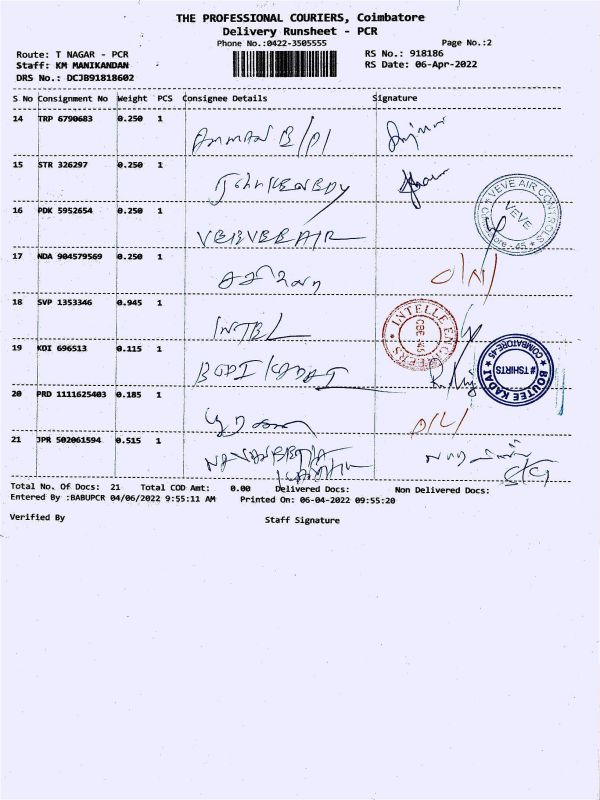 THE PROFESSIONAL COURIERS, Coimbatore
Delivery Runsheet - PCR
Phone No.:0422-3505555
Page No.:2
Route: T NAGAR - PCR
RS No.: 918186
Staff: KM MANIKANDAN
RS Date: 06-Apr-2022
DRS No.: DCJB91818602
S No Consignment No Weight PCS Consignee Details Signature
14 TRP 6790683 0.250 1
AMMAN B/PI
15 STR 326297 0.250 1
John KENEDY
VEVE AIR CONTROLS
VEVE
16 PDK 5952654 0.250 1
17 NDA 904579569 0.250 1
18 SVP 1353346 0.945 1
INTEL
CBE 45
19 KDI 696513 0.115 1
BOUTEE KADAI
# TSHIRTS
COIMBATORE-45
20 PRD 1111625403 0.185 1
21 JPR 502061594 0.515 1
Total No. Of Docs: 21 Total COD Amt: 0.00 Delivered Docs: Non Delivered Docs:
Entered By :BABUPCR 04/06/2022 9:55:11 AM Printed On: 06-04-2022 09:55:20
Verified By
Staff Signature